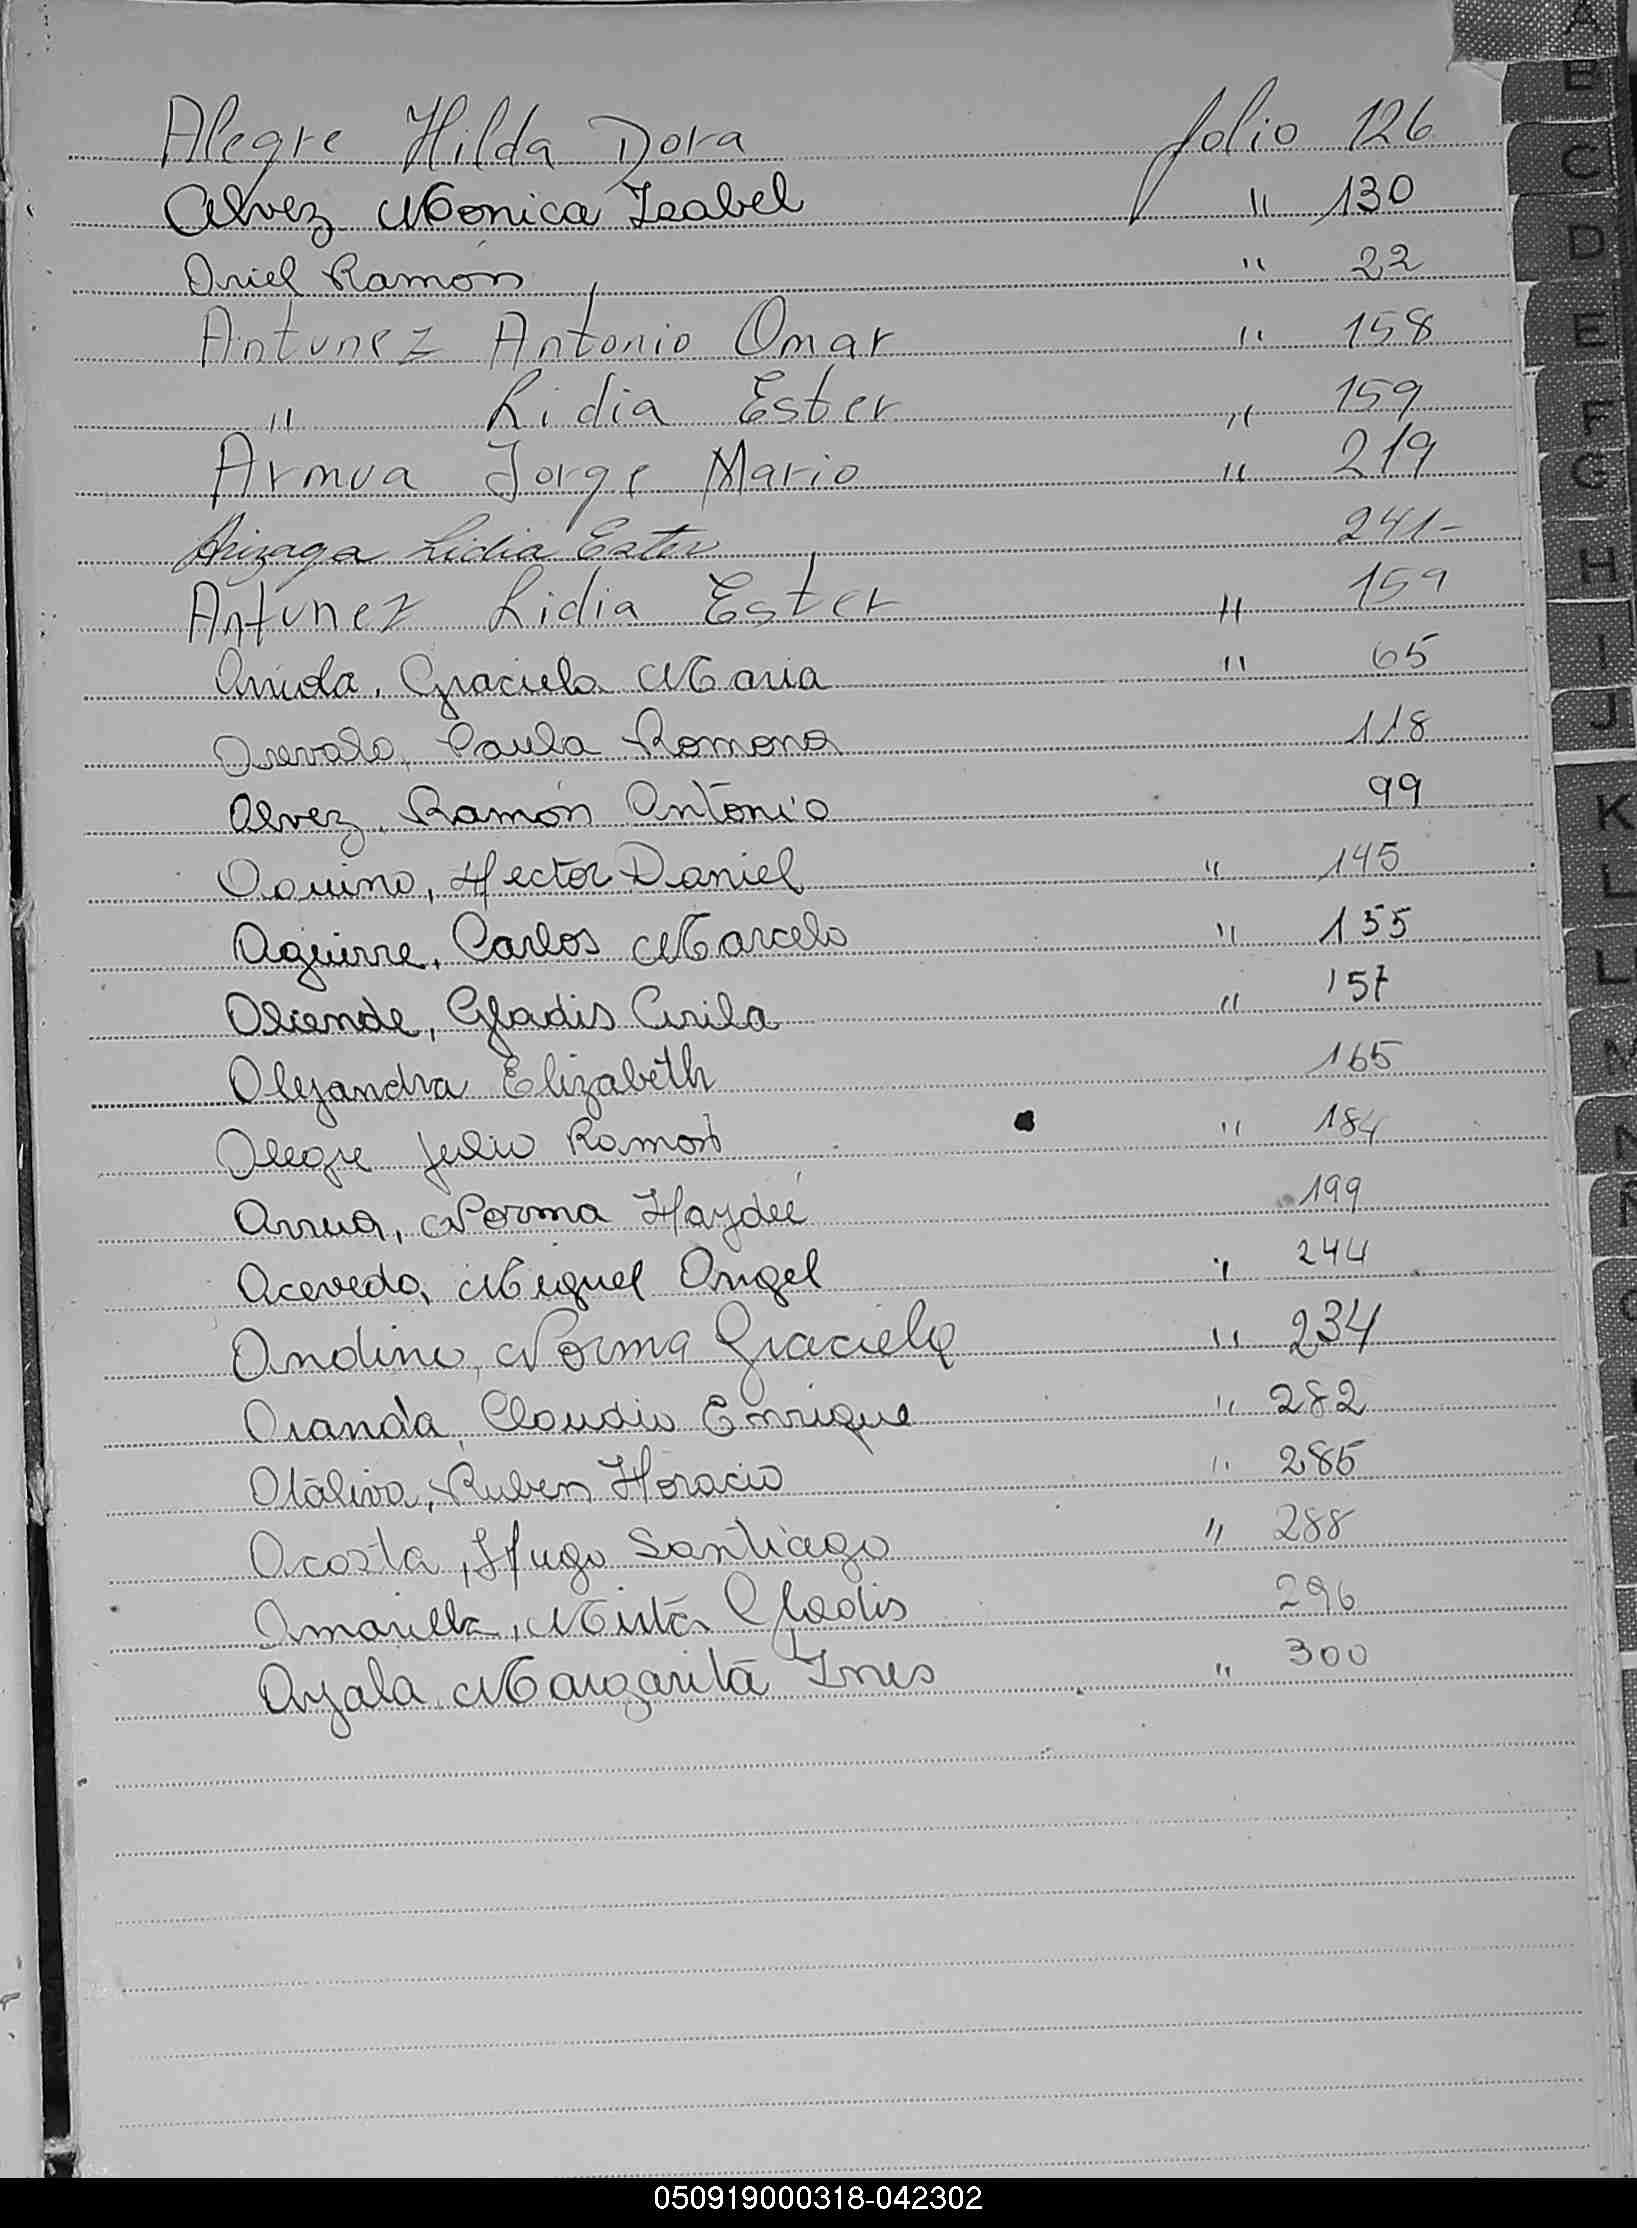 Alegre Hilda Dora folio 126
Alvez Monica Isabel " 130
Ariel Ramón " 22
Antunez Antonio Omar " 158
" Lidia Ester " 159
Armua Jorge Mario " 219
Arizaga Lidia Ester 241-
Antunez Lidia Ester " 159
Arriola, Graciela Maria " 65
Arevalo, Paula Romona 118
Alvez, Ramón Antonio 99
Aquino, Hector Daniel " 145
Aguirre, Carlos Marcelo " 155
Aliende, Gladis Cirila " 157
Alejandra Elizabeth 165
Alegre Julio Ramon " 184
Arrua, Norma Haydeé 199
Acevedo, Miguel Angel " 244
Andino, Norma Graciela " 234
Aranda, Claudio Enrique " 282
Ataliva, Ruben Horacio " 285
Acosta, Hugo Santiago " 288
Amarilla, Mirta Gladis 296
Ayala Margarita Ines " 300
A
B
C
D
E
F
G
H
I
J
K
L
L
M
N
Ñ
050919000318-042302